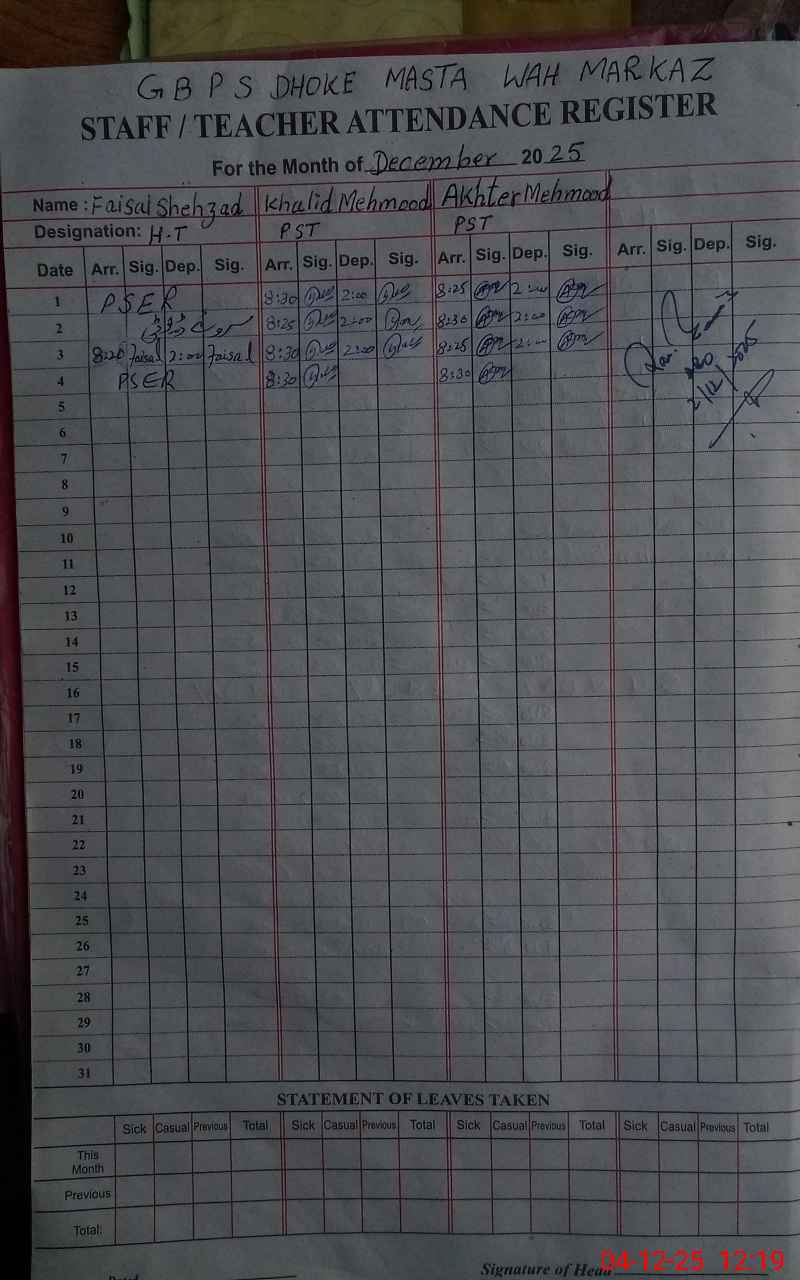 GBPS DHOKE MASTA WAH MARKAZ
STAFF / TEACHER ATTENDANCE REGISTER
For the Month of December 2025
Name : Faisal Shehzad Khalid Mehmood Akhter Mehmood
Designation: H.T PST PST
Date Arr. Sig. Dep. Sig. Arr. Sig. Dep. Sig. Arr. Sig. Dep. Sig. Arr. Sig. Dep. Sig.
1 PSER 8:30 2:00 8:25 2:00
2 8:25 2:00 8:30 2:00
3 8:20 Faisal 2:00 Faisal 8:30 2:00 8:25 2:00
4 PSER 8:30 8:30
5
6
7
8
9
10
11
12
13
14
15
16
17
18
19
20
21
22
23
24
25
26
27
28
29
30
31
2/12/2025
STATEMENT OF LEAVES TAKEN
Sick Casual Previous Total Sick Casual Previous Total Sick Casual Previous Total Sick Casual Previous Total
This Month
Previous
Total:
Signature of Head
04-12-25 12:19